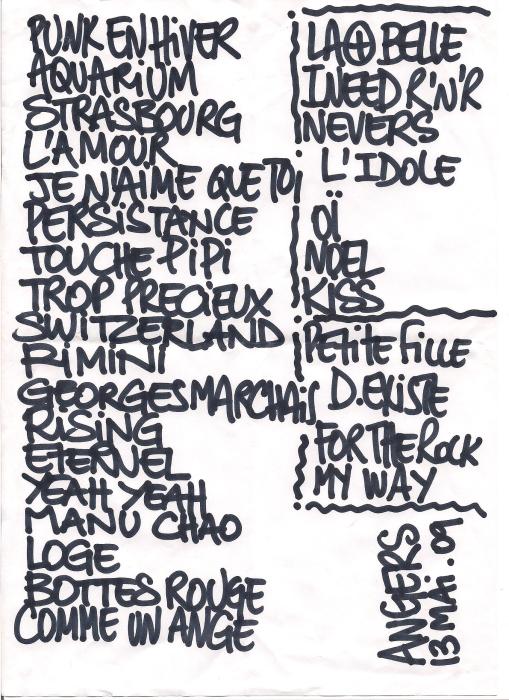 PUNK EN HiVER
AQUARiUM
STRASBOURG
L'AMOUR
JE N'AiME QUE TOi
PERSiSTANCE
TOUCHE PiPi
TROP PRECiEUX
SWiTZERLAND
RiMiNi
GEORGES MARCHAiS
RiSiNG
ETERNEL
YEAH YEAH
MANU CHAO
LOGE
BOTTES ROUGE
COMME UN ANGE
LA + BELLE
I NEED R'N'R
NEVERS
L'IDOLE
OÏ
NOEL
KISS
PETiTE FiLLE
D.EXiSTE
FOR THE ROCK
MY WAY
ANGERS
13 MAi.09